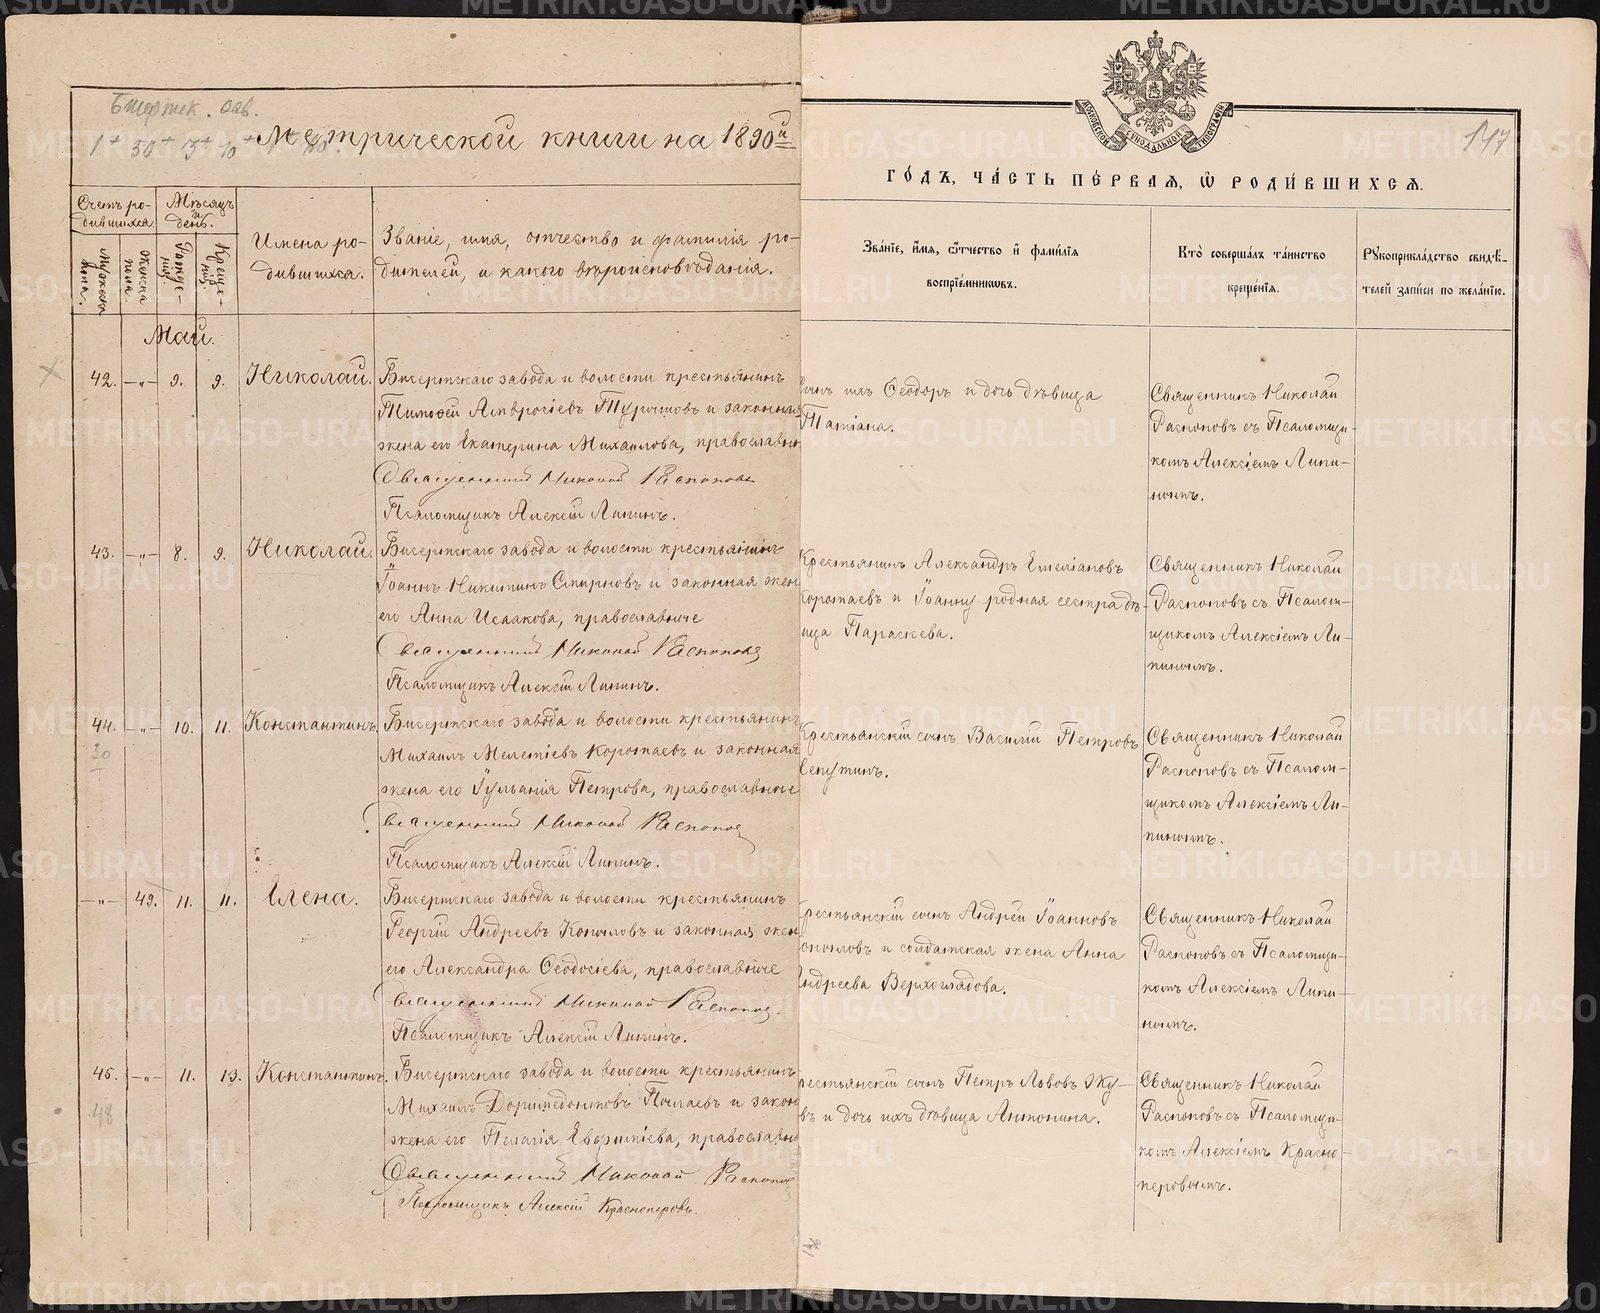 Метрической книги на 1890й
147
ГО́ДЪ, ЧА́СТЬ ПЕ́РВАЯ, Ѡ҆ РОДИ́ВШИХСЯ.
Счетъ ро-
дившихся.
Мѣсяцъ и
день.
Мужеска
пола.
Женска
пола.
Рожде-
нія.
Креще-
нія.
Имена ро-
дившихся.
Званіе, имя, отчество и фамилія ро-
дителей, и какого вѣроисповѣданія.
Зва́нїе, и҆́мя, ѻ҆́тчество и҆ фами́лїѧ
воспрїе́мникѡвъ.
Кто̀ соверша́лъ та́инство
креще́нїѧ.
Рꙋкоприкла́дство свидѣ́-
телей за́писи по жела́нїю.
Май.
42. —„— 9. 9. Николай.
Бисертскаго завода и волости крестьянинъ
Тимофей Амвросіевъ Турышовъ и законная
жена его Екатерина Михаилова, православн
Священникъ Николай Распоповъ
Псаломщикъ Алексій Липинъ.
Сынъ ихъ Ѳеодоръ и дочь дѣвица
Татіана.
Священникъ Николай
Распоповъ съ Псаломщи-
комъ Алексіемъ Липи-
нымъ.
43. —„— 8. 9. Николай.
Бисертскаго завода и волости крестьянинъ
Іоаннъ Никитинъ Смирновъ и законная жен
его Анна Исаакова, православные
Священникъ Николай Распоповъ
Псаломщикъ Алексій Липинъ.
Крестьянинъ Александръ Емеліановъ
Коротаевъ и Іоанну родная сестра дѣ-
ица Параскева.
Священникъ Николай
Распоповъ съ Псалом-
щикомъ Алексіемъ Ли-
пинымъ.
44. —„— 10. 11. Константинъ
30
Бисертскаго завода и волости крестьянинъ
Михаилъ Мелетіевъ Коротаевъ и законная
жена его Іульанія Петрова, православные
Священникъ Николай Распоповъ
Псаломщикъ Алексій Липинъ.
Крестьянскій сынъ Василій Петровъ
Сепутинъ.
Священникъ Николай
Распоповъ съ Псалом-
щикомъ Алексіемъ Ли-
пинымъ.
—„— 49. 11. 11. Елена.
Бисертскаго завода и волости крестьянинъ
Георгій Андреевъ Копыловъ и законная жен
его Александра Ѳеодосіева, православные
Священникъ Николай Распоповъ
Псаломщикъ Алексій Липинъ.
рестьянскій сынъ Андрей Іоанновъ
опыловъ и солдатская жена Анна
Андреева Верхоглядова.
Священникъ Николай
Распоповъ съ Псаломщи-
комъ Алексіемъ Липи-
нымъ.
45. —„— 11. 13. Константинъ.
48
Бисертскаго завода и волости крестьянинъ
Михаилъ Доримедонтовъ Пылаевъ и закон
жена его Пелагія Евфиміева, православн
Священникъ Николай Распоповъ
Псаломщикъ Алексій Красноперовъ.
рестьянскій сынъ Петръ Львовъ Жу-
въ и дочь ихъ дѣвица Антонина.
Священникъ Николай
Распоповъ съ Псаломщи-
комъ Алексіемъ Красно-
перовымъ.
METRIKI.GASO-URAL.RU